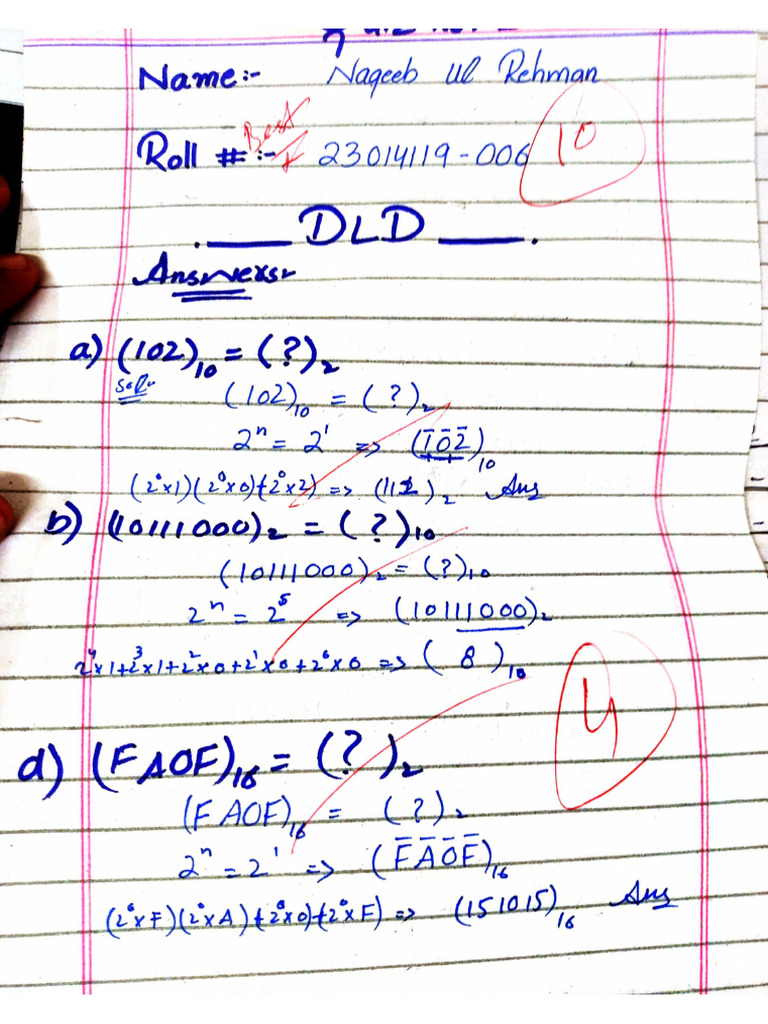 Name:- Naqeeb Ul Rehman
Best
Roll #:- 23014119-006
10
DLD
Answers:
a) (102)₁₀ = (?)₂
Sol:
(102)₁₀ = (?)₂
2ⁿ = 2¹ => (1̅0̅2̅)₁₀
(2⁰×1)(2⁰×0)+(2⁰×2) => (112)₂ Ans
b) (10111000)₂ = (?)₁₀
(10111000)₂ = (?)₁₀
2ⁿ = 2⁵ => (10111000)₂
2⁴×1+2³×1+2²×0+2¹×0+2⁰×0 => (8)₁₀
4
d) (FAOF)₁₆ = (?)₂
(FAOF)₁₆ = (?)₂
2ⁿ = 2¹ => (F̅A̅O̅F̅)₁₆
(2⁰×F)(2⁰×A)+(2⁰×0)+(2⁰×F) => (151015)₁₆ Ans